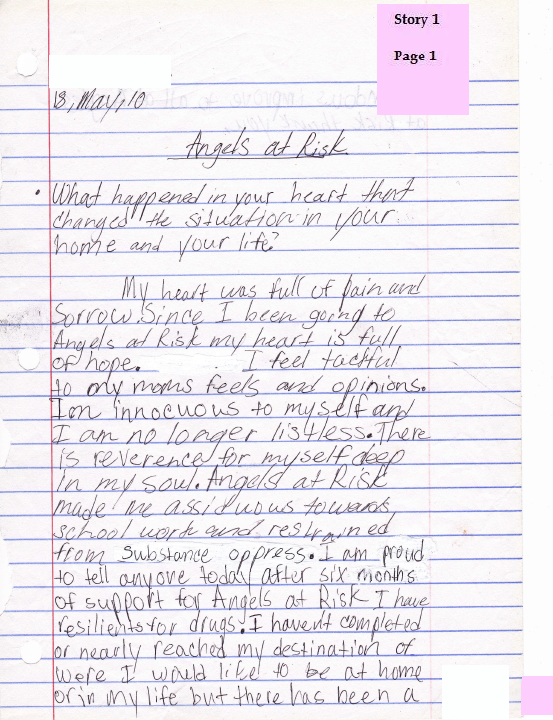 Story 1
Page 1
18, May, 10
Angels at Risk
• What happened in your heart that
changed the situation in your
home and your life?
My heart was full of pain and
Sorrow. Since I been going to
Angels at Risk my heart is full
of hope. I feel tactful
to my moms feels and opinions.
Im innocuous to myself and
I am no longer listless. There
is reverence for myself deep
in my soul. Angels at Risk
made me assiduous towards
school work and restrained
from substance oppress. I am proud
to tell anyone today after six months
of support for Angels at Risk I have
resilients for drugs. I havent completed
or nearly reached my destination of
were I would like to be at home
or in my life but there has been a